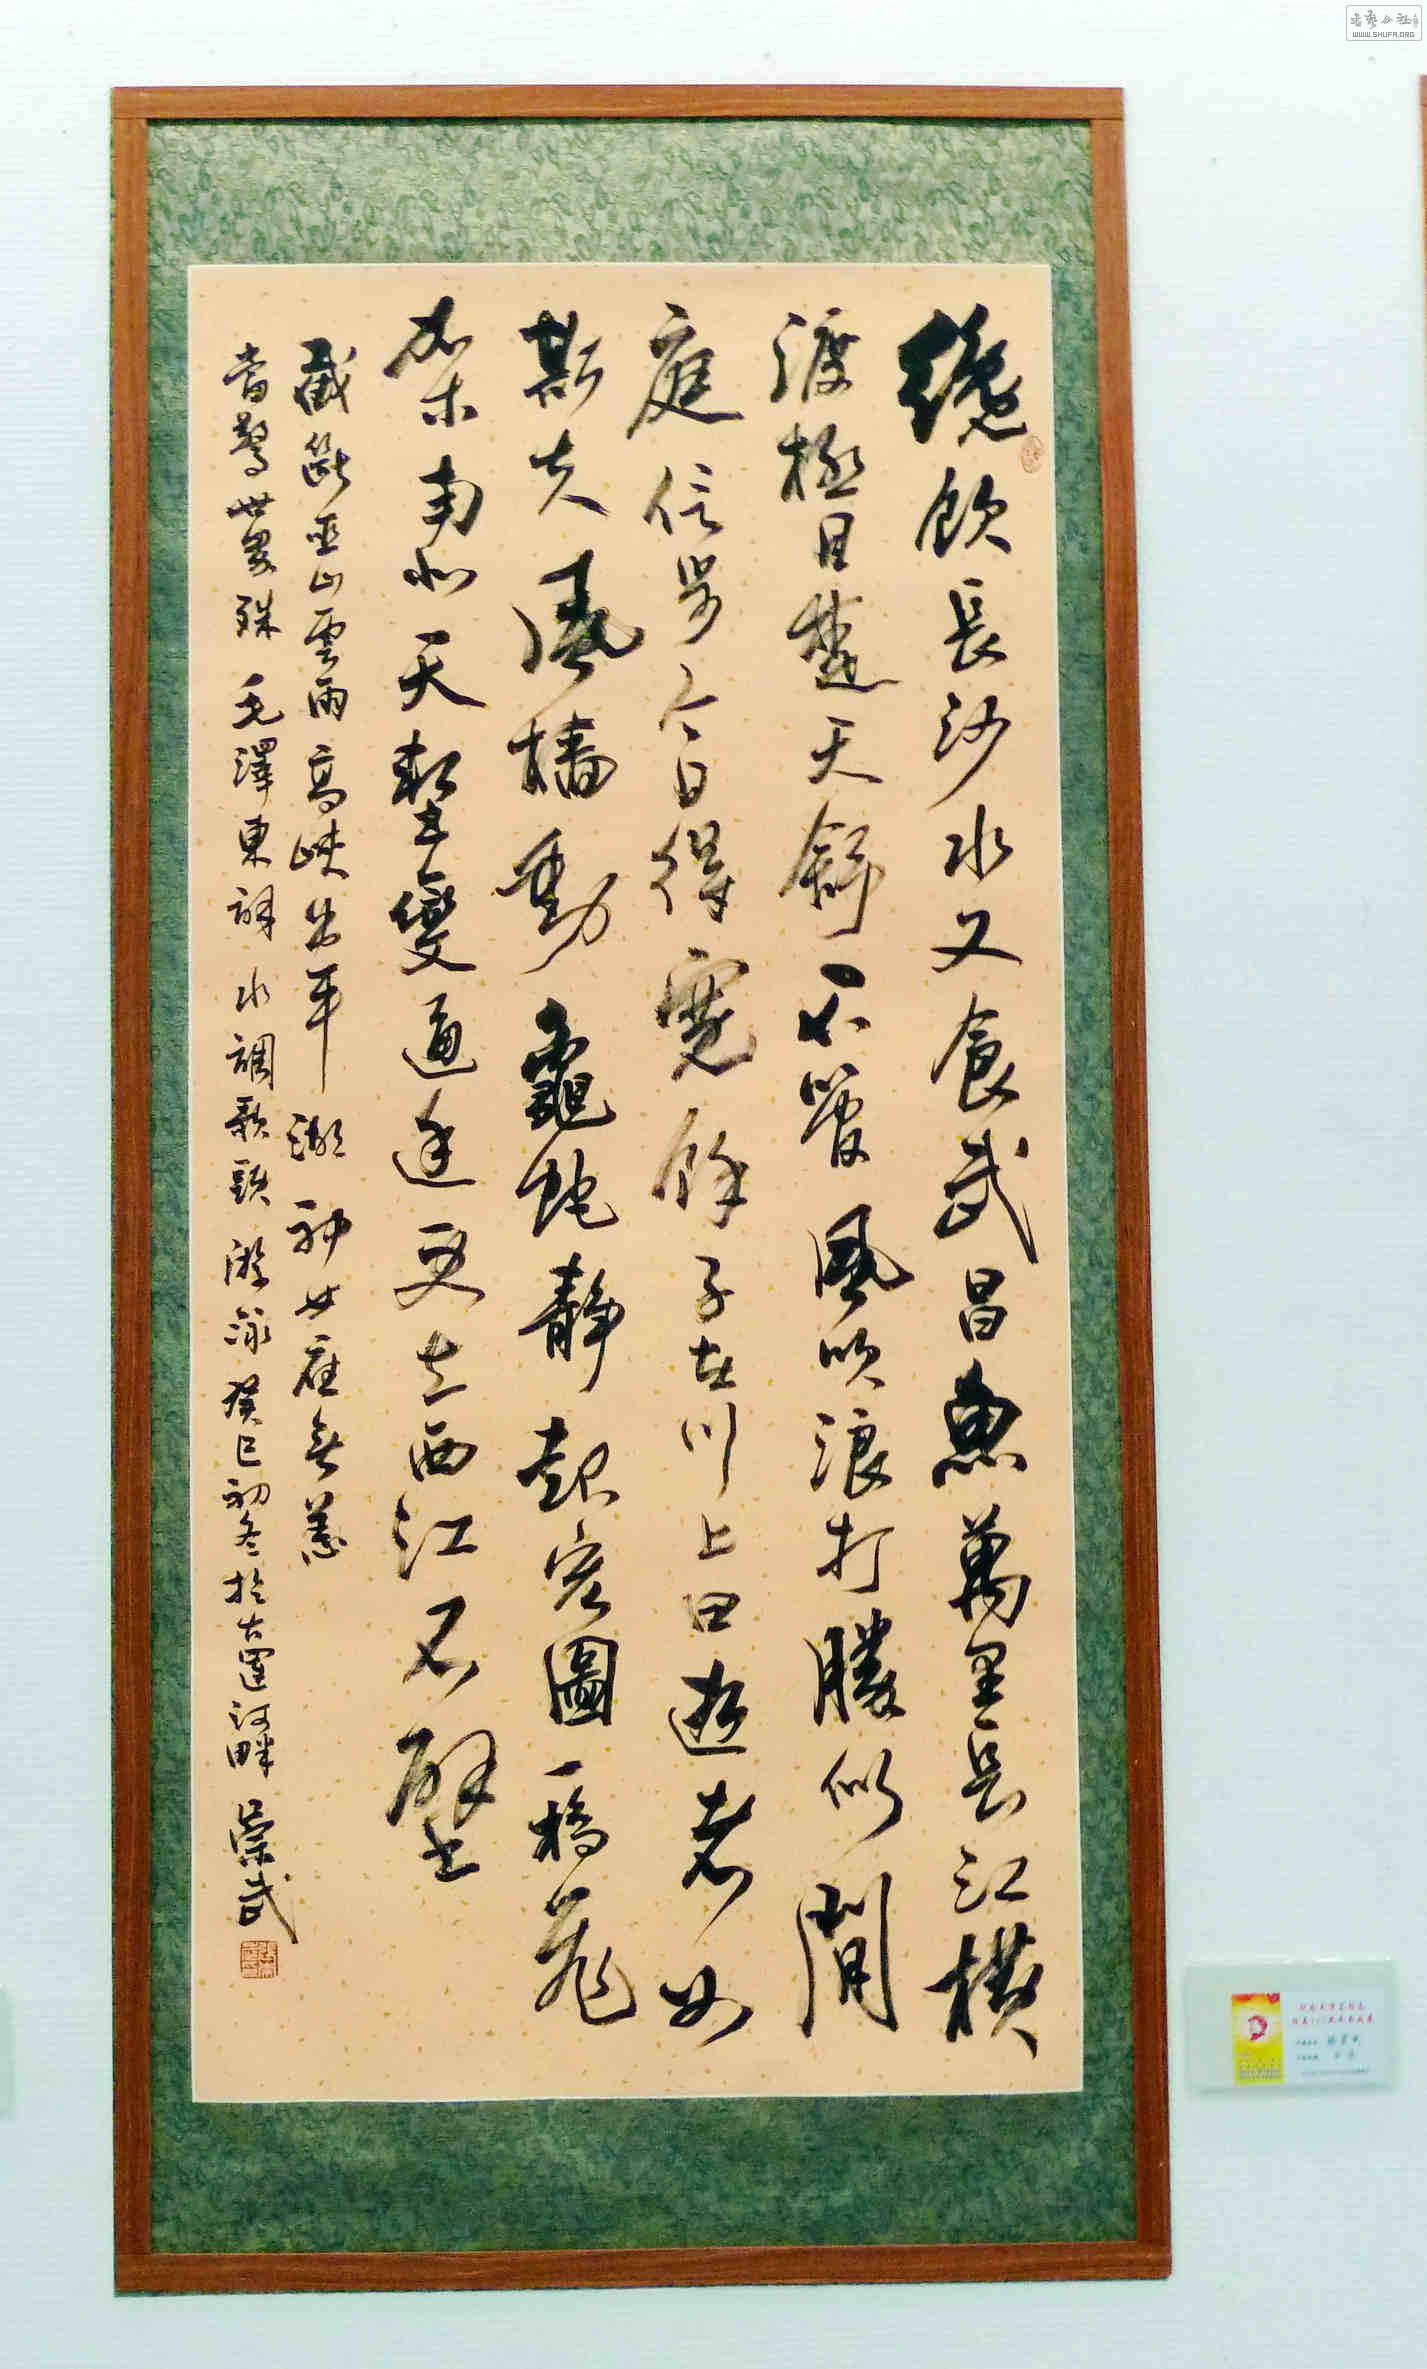 纔飲長沙水又食武昌魚萬里長江橫
渡極目楚天舒不管風吹浪打勝似閒
庭信步今日得寬餘子在川上曰逝者如
斯夫風檣動龜蛇靜起宏圖一橋飛
架南北天塹變通途更立西江石壁
截斷巫山雲雨高峽出平湖神女應無恙
當驚世界殊毛澤東詞水調歌頭游泳癸巳初冬於古運河畔崇武
書藝公社
WWW.SHUFA.ORG